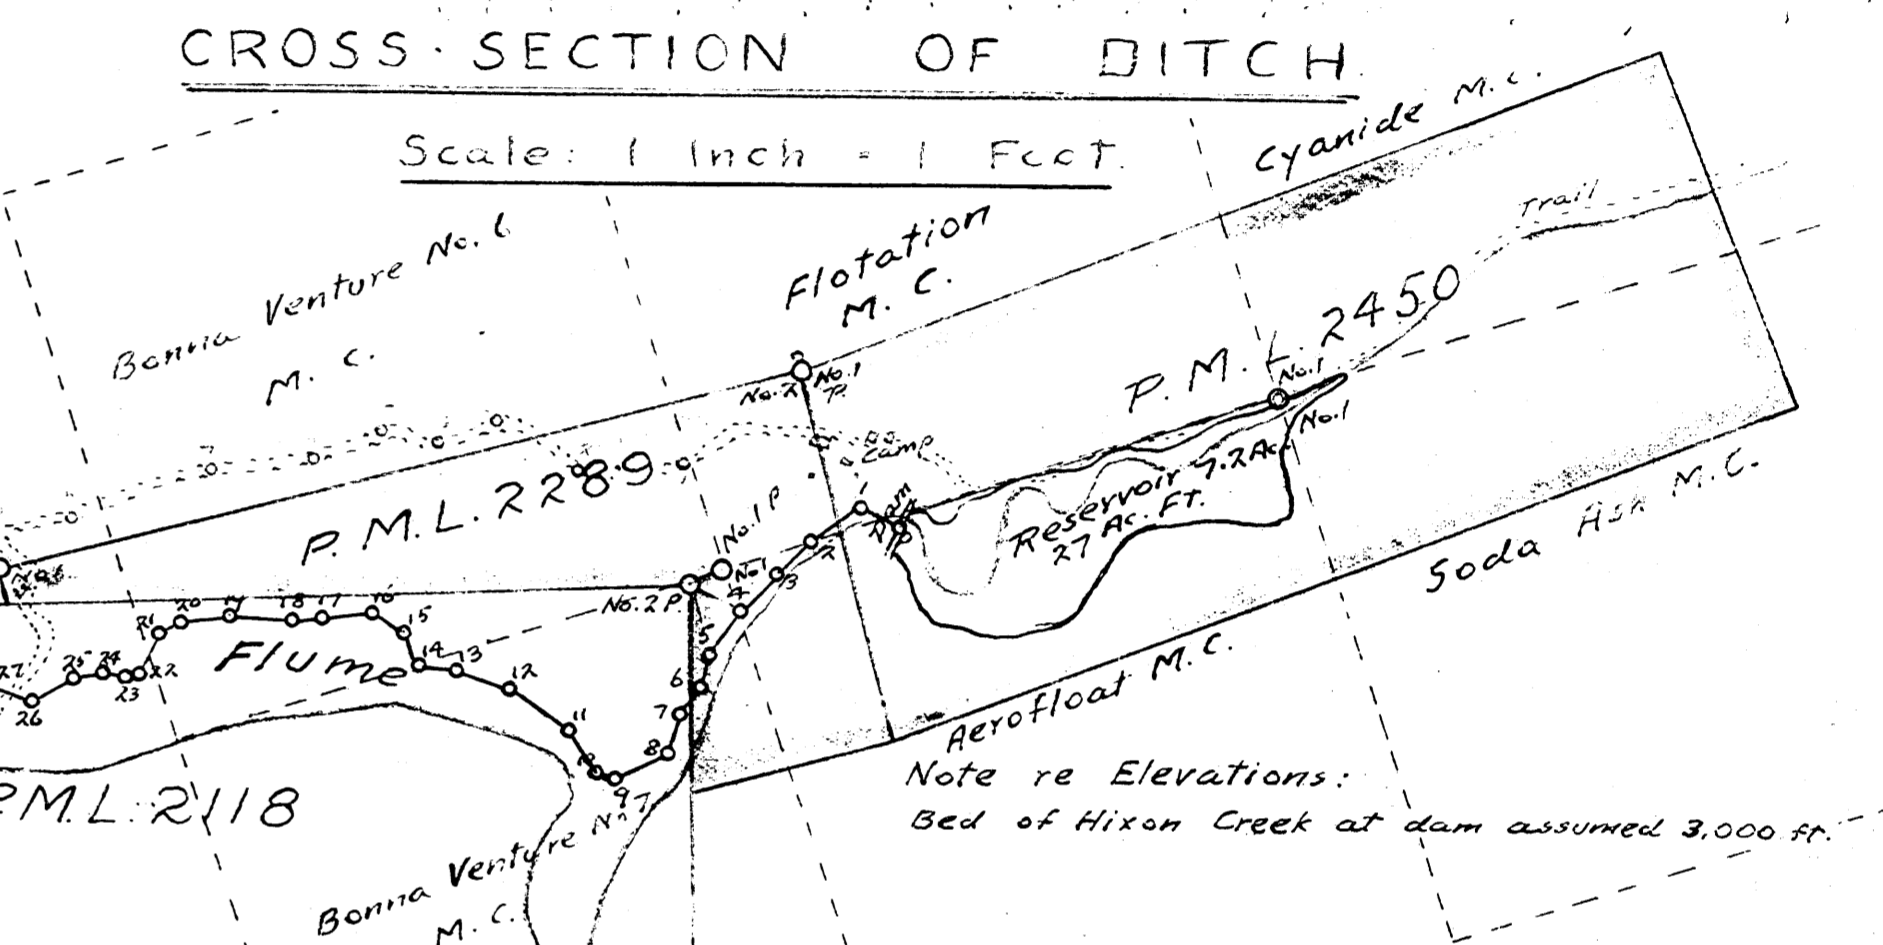 CROSS-SECTION OF DITCH
Scale: 1 Inch = 1 Feet.
Cyanide M.C.
Trail
Bonna Venture No. 6
M. C.
Flotation
M. C.
P. M. L. 2450
No. 2
No. 1
P.
No. 1
No. 1
Camp
P. M. L. 2289
Reservoir 7.2 Ac.
27 Ac. FT.
Dam
Soda Ash M.C.
No. 1 P
No. 1
No. 2 P.
1
2
3
4
5
6
7
8
9
11
12
13
14
15
16
17
18
19
20
21
22
23
24
25
26
27
Flume
Aerofloat M.C.
P.M.L. 2118
Bonna Venture No. 7
M. C.
Note re Elevations:
Bed of Hixon Creek at dam assumed 3,000 ft.